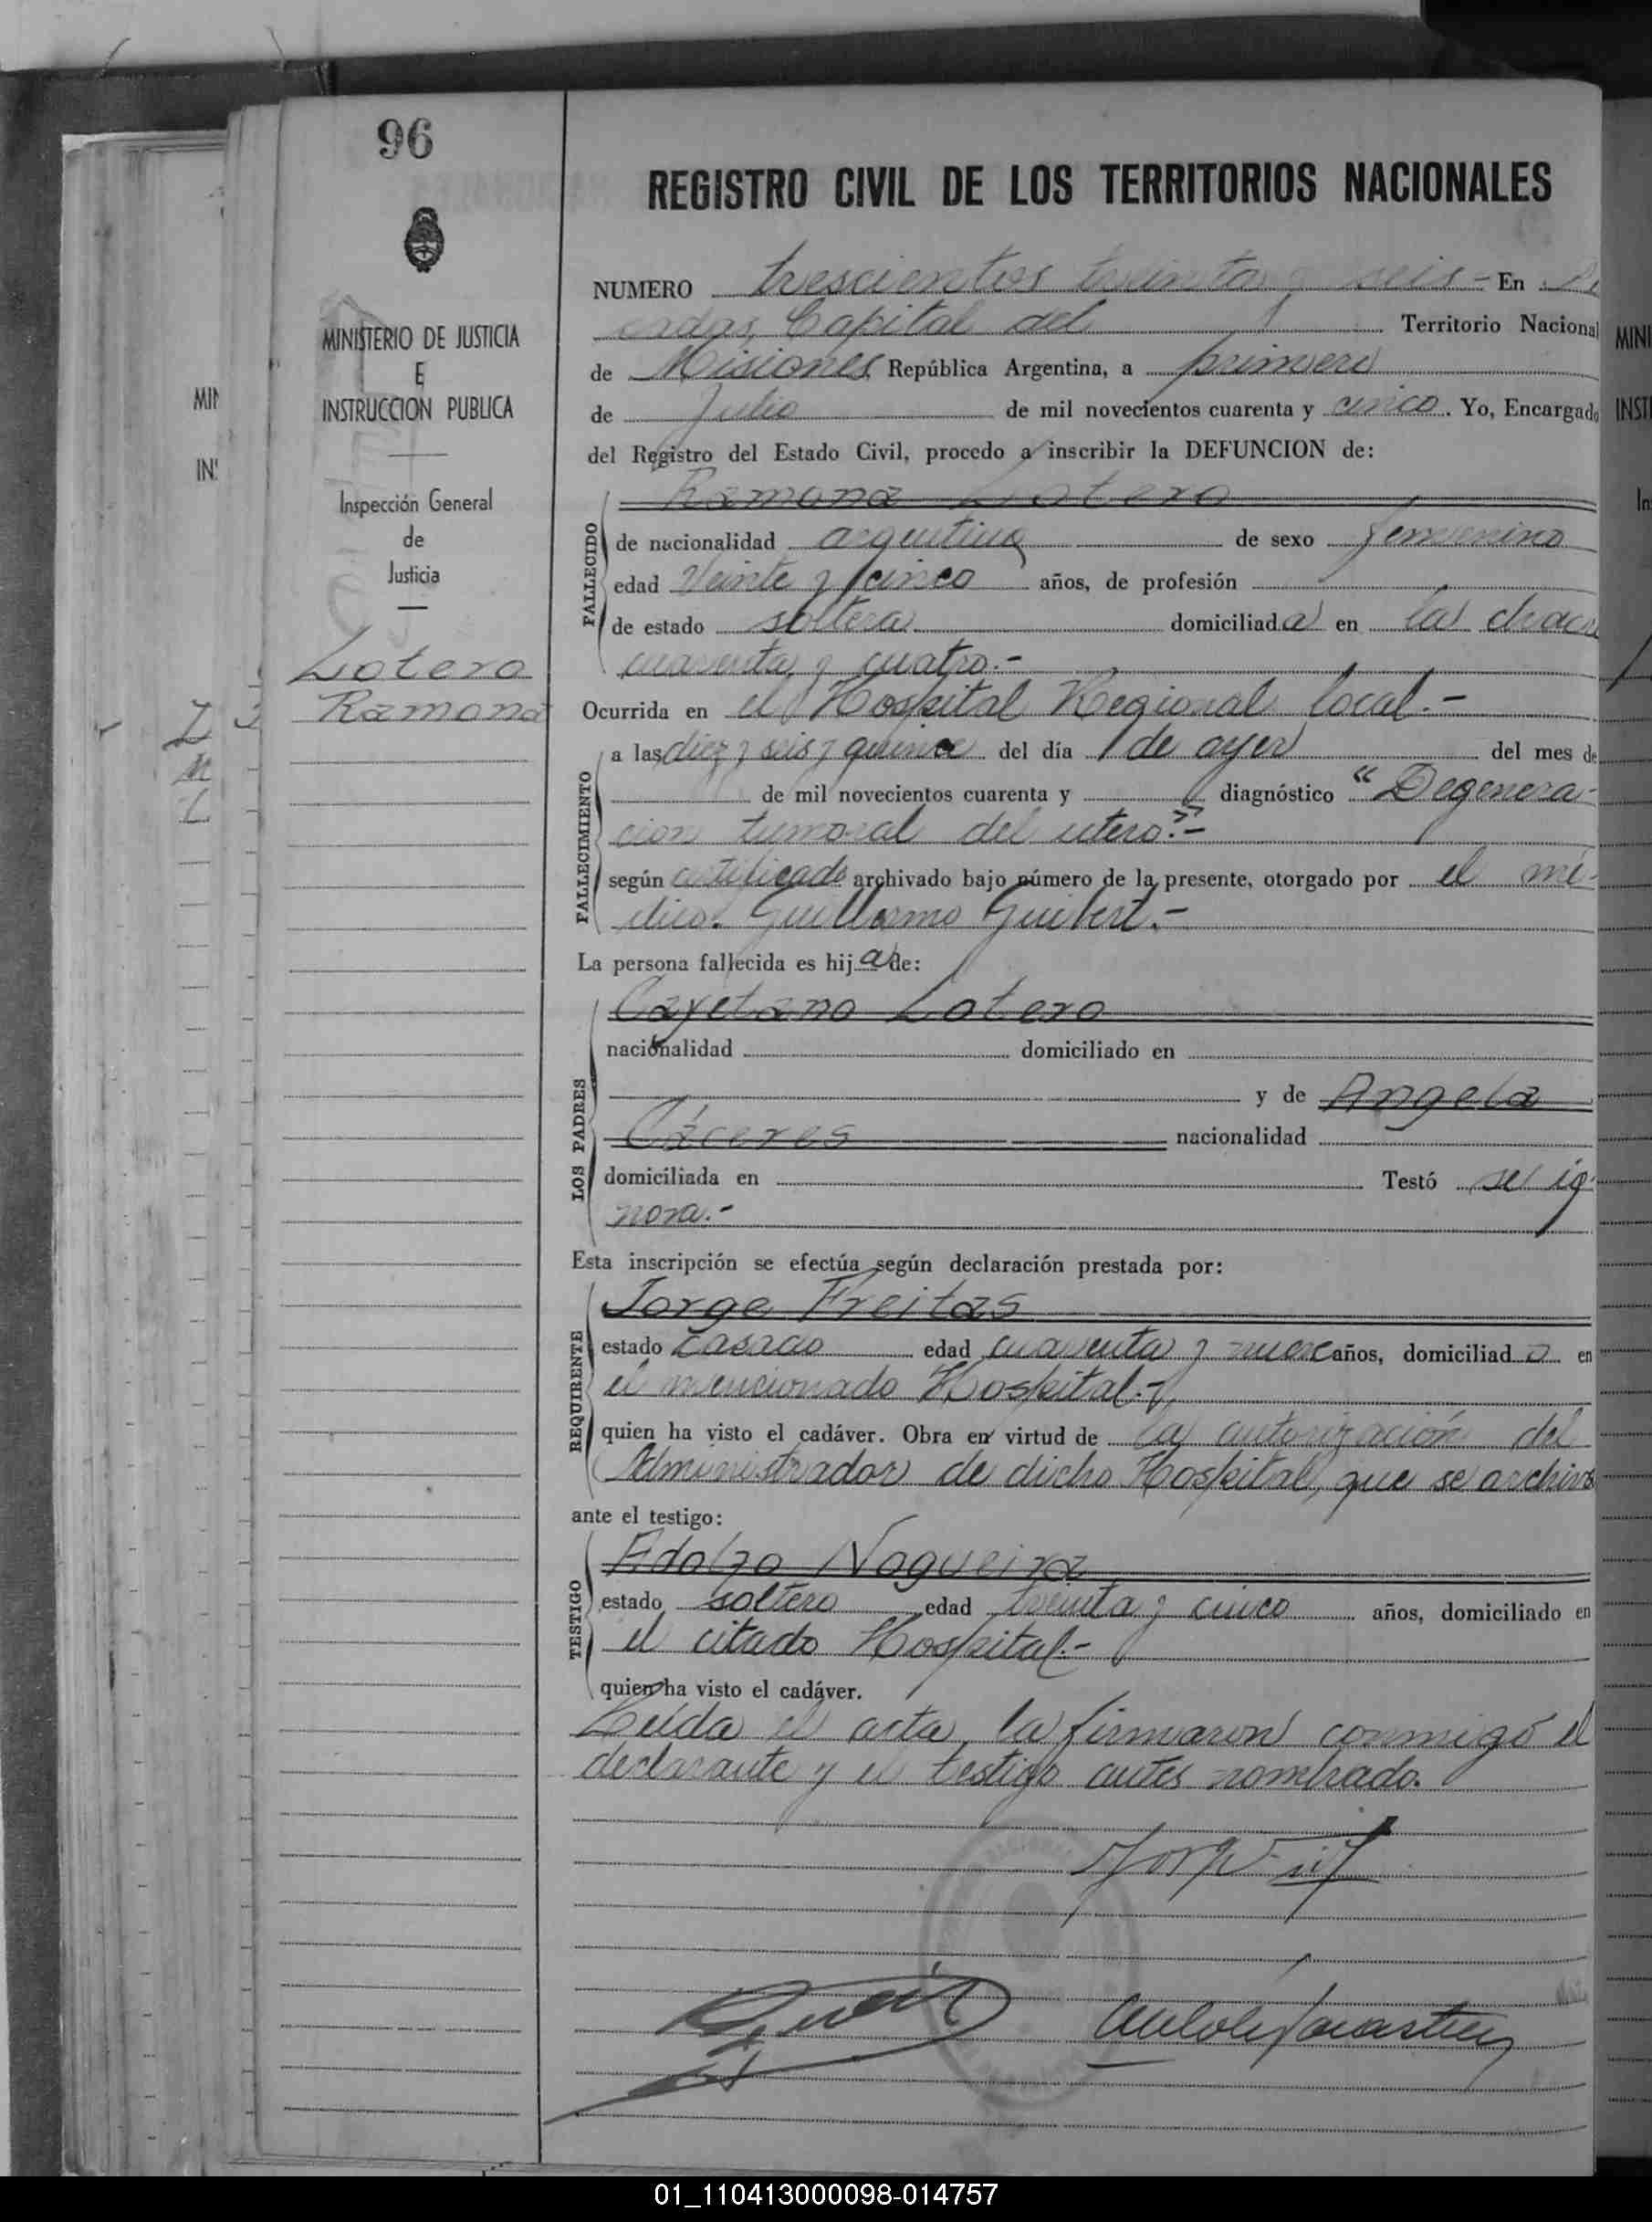 96
REGISTRO CIVIL DE LOS TERRITORIOS NACIONALES
MINISTERIO DE JUSTICIA
E
INSTRUCCION PUBLICA
Inspección General
de
Justicia
Lotero
Ramona
NUMERO trescientos treinta y seis - En Po
sadas, Capital del Territorio Nacional
de Misiones República Argentina, a primero
de Julio de mil novecientos cuarenta y cinco. Yo, Encargado
del Registro del Estado Civil, procedo a inscribir la DEFUNCION de:
Ramona Lotero
FALLECIDO
de nacionalidad argentina de sexo femenino
edad veinte y cinco años, de profesión
de estado soltera domiciliada en la chacra
cuarenta y cuatro.-
Ocurrida en el Hospital Regional local.-
FALLECIMIENTO
a las diez y seis y quince del día de ayer del mes de
de mil novecientos cuarenta y diagnóstico "Degenera-
cion tumoral del utero".-
según certificado archivado bajo número de la presente, otorgado por el mé-
dico. Guillermo Guibert.-
La persona fallecida es hija de:
LOS PADRES
Cayetano Lotero
nacionalidad domiciliado en
y de Angela
Cáceres nacionalidad
domiciliada en Testó se ig-
nora.-
Esta inscripción se efectúa según declaración prestada por:
REQUIRENTE
Jorge Freitas
estado casado edad cuarenta y nueve años, domiciliado en
el mencionado Hospital.-
quien ha visto el cadáver. Obra en virtud de la autorización del
Administrador de dicho Hospital, que se archiva
ante el testigo:
TESTIGO
Adolfo Nogueira
estado soltero edad treinta y cinco años, domiciliado en
el citado Hospital.-
quien ha visto el cadáver.
Leída el acta, la firmaron conmigo el
declarante y el testigo antes nombrado.
01_110413000098-014757